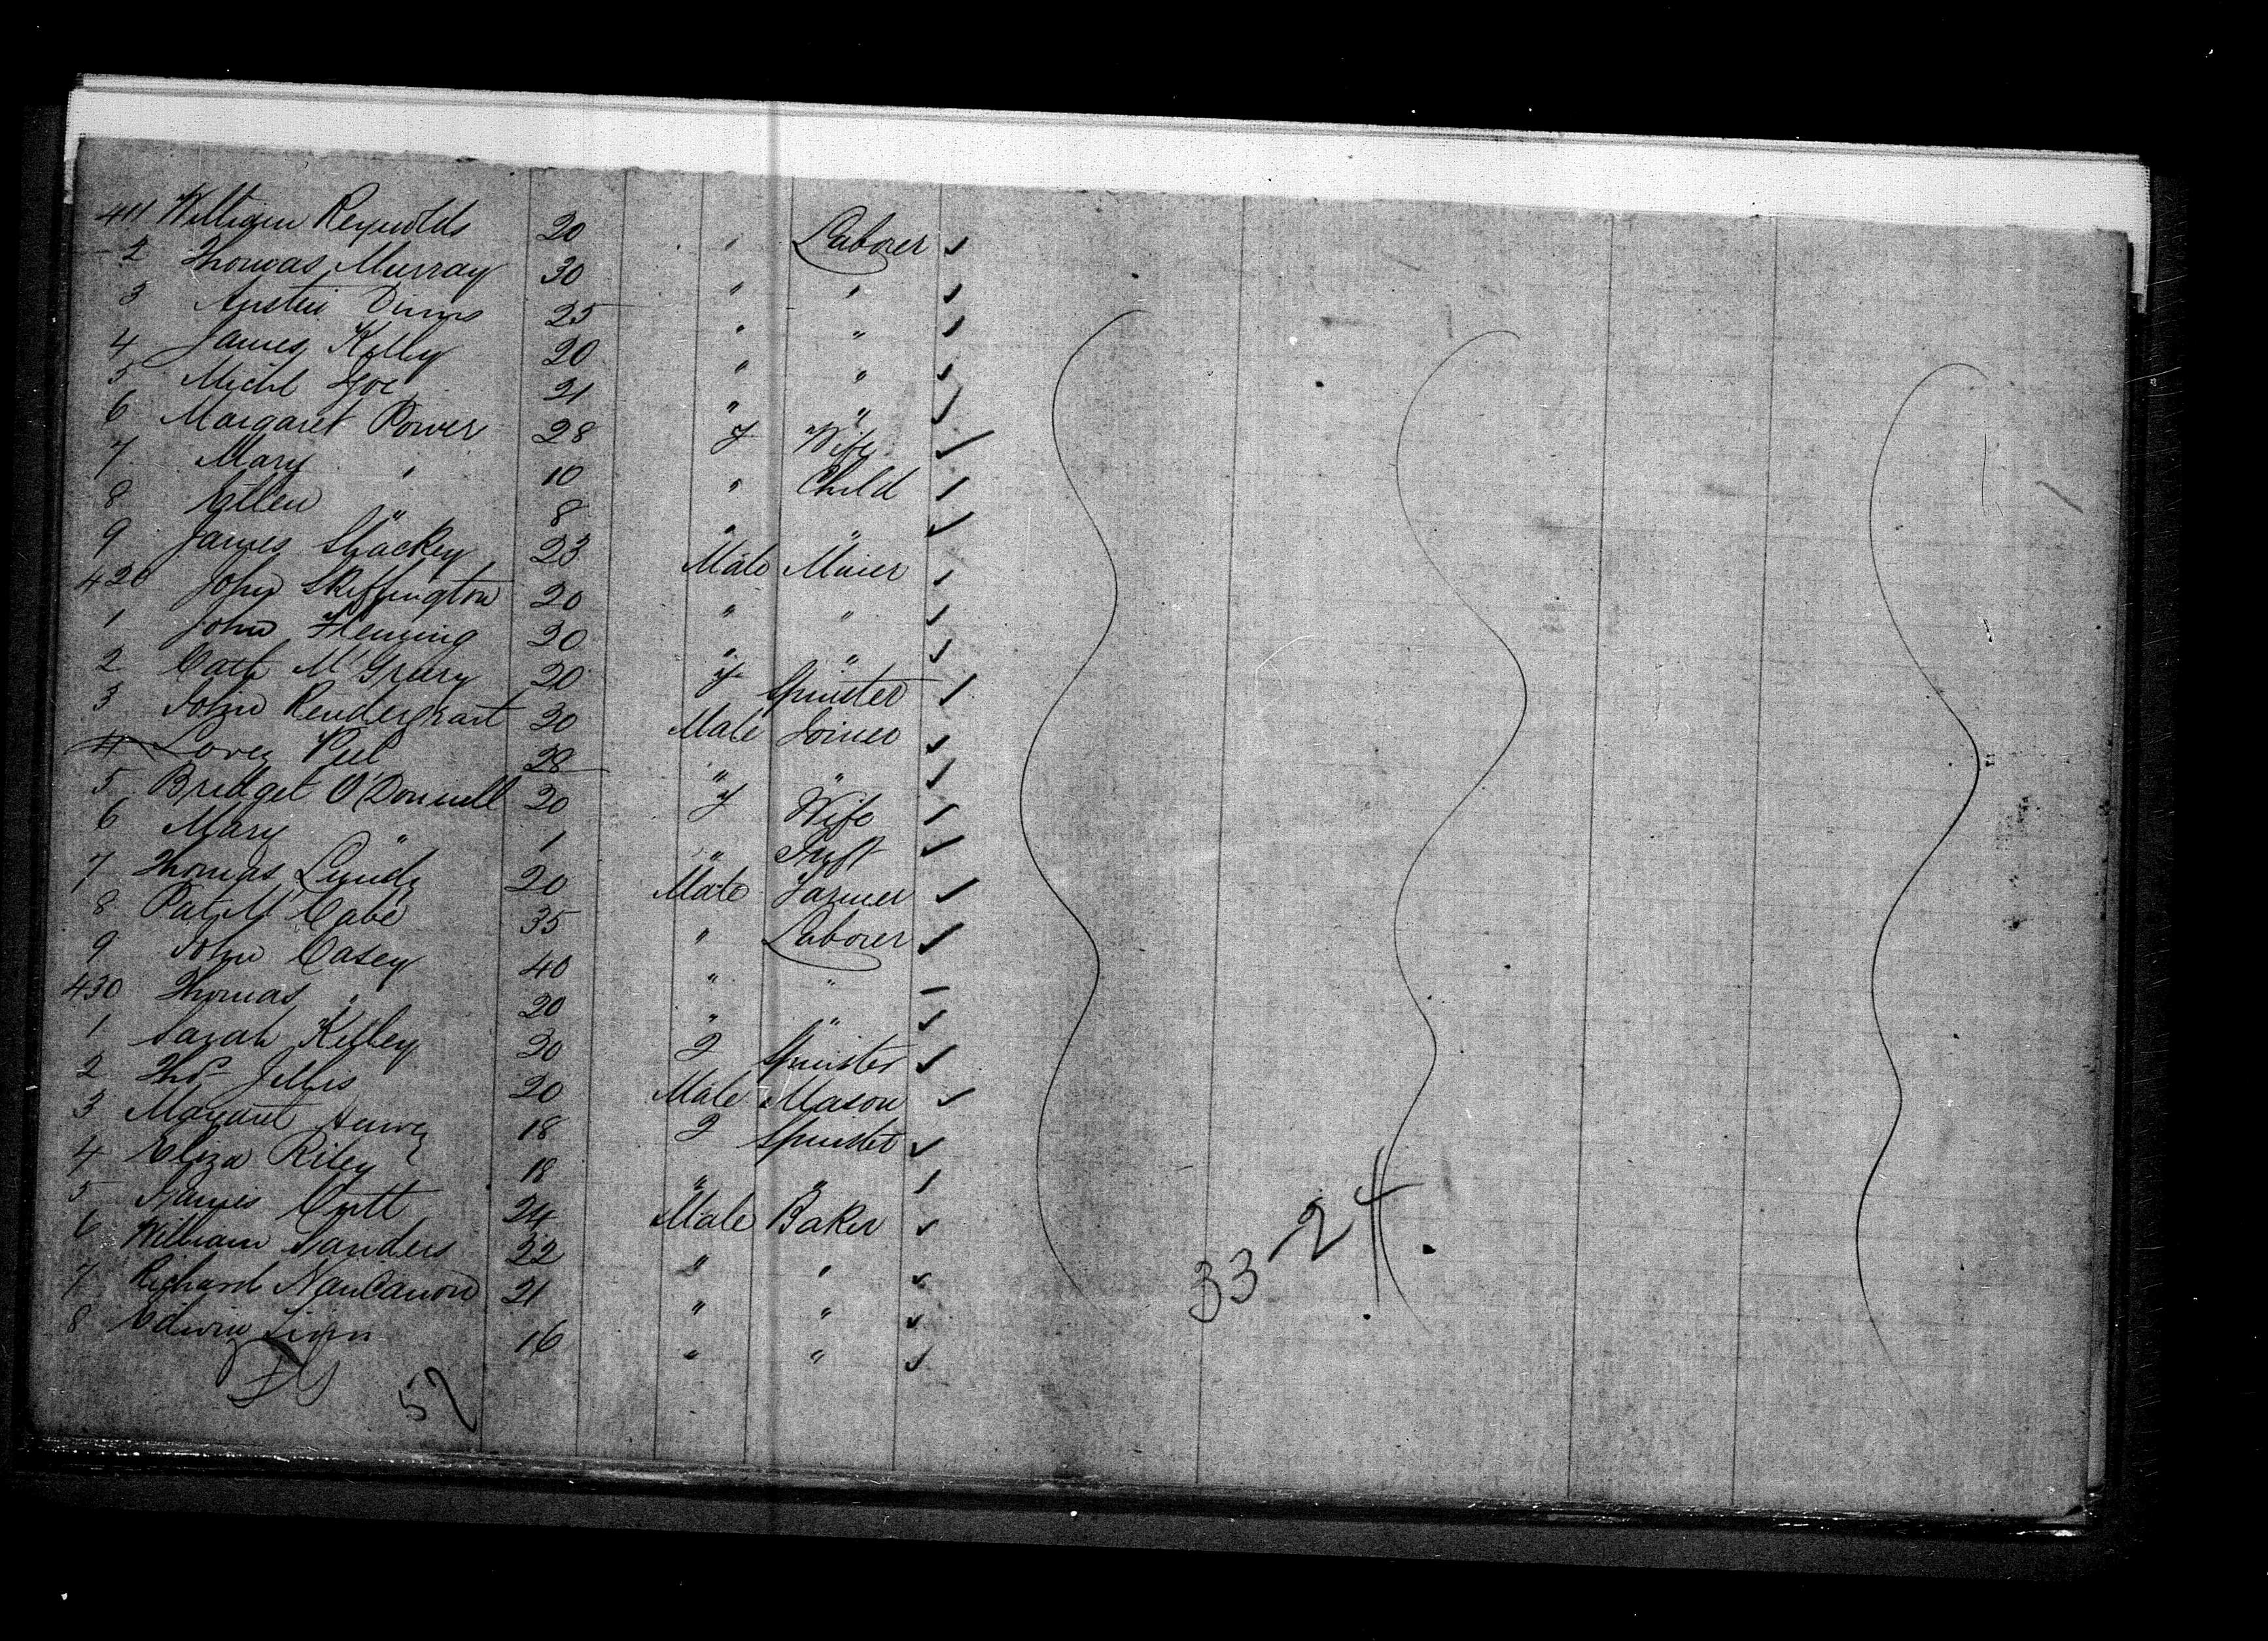 411 William Reynolds 20 " Laborer
2 Thomas Murray 30 " "
3 Austin Dunns 25 " "
4 James Kelly 20 " "
5 Michl Joe 21 " "
6 Margaret Power 28 f Wife
7 Mary " 10 " Child
8 Ellen " 8 " "
9 James Stackey 23 Male Miner
420 John Skiffington 20 " "
1 John Fleming 20 " "
2 Cath McGreery 20 f Spinster
3 John Rendergrast 20 Male Joiner
4 Lovey Peel 28 " "
5 Bridget O'Donnell 20 f Wife
6 Mary " 1 " Inft
7 Thomas Lundy 20 Male Farmer
8 Pat McCabe 35 " Laborer
9 John Casey 40 " "
430 Thomas " 20 " "
1 Sarah Kelley 20 f Spinster
2 Thos Jellis 20 Male Mason
3 Margaret Hervey 18 f Spinster
4 Eliza Riley 18 " "
5 James Cutt 24 Male Baker
6 William Sanders 22 " "
7 Richard NanCarrow 21 " "
8 Edwin 16 " "
57
33 24